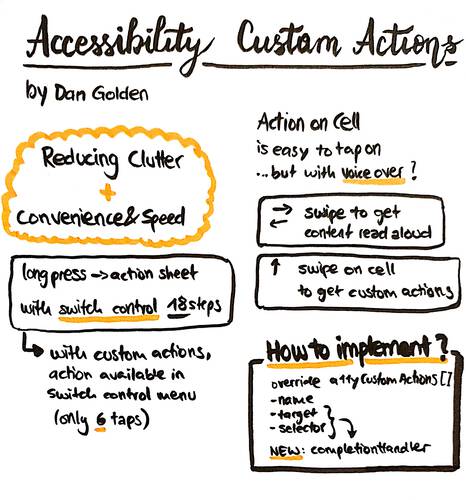 Accessibility Custom Actions
by Dan Golden
Reducing Clutter
+
Convenience & Speed
long press → action sheet
with switch control 18 steps
↳ with custom actions,
action available in
switch control menu
(only 6 taps)
Action on Cell
is easy to tap on
...but with voice over?
→ swipe to get
← content read aloud
↑ swipe on cell
to get custom actions
How to implement?
override a11yCustomActions[]
-name
-target
-selector
NEW: completionHandler